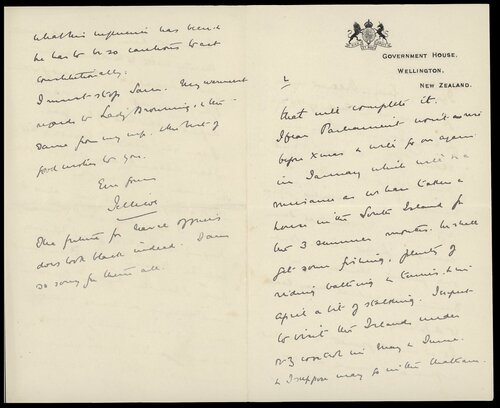 what his influence has been &
he has to be so cautious to act
constitutionally.
I must stop Sam. My warmest
regards to Lady Browning, & the
same from my wife. The best of
good wishes to you.
Ever yours
Jellicoe
The future for Naval officers
does look black indeed. I am
so sorry for them all.
GOVERNMENT HOUSE,
WELLINGTON,
NEW ZEALAND.
that will complete it.
I fear Parliament won't
before Xmas & will go on again
in January which will be a
nuisance as we have taken a
house in the South Island for
the 3 summer months. We shall
get some fishing, plenty of
riding bathing & tennis, & in
April a bit of stalking. I expect
to visit the Islands under
control in May & June.
& I suppose may go in the Chatham.